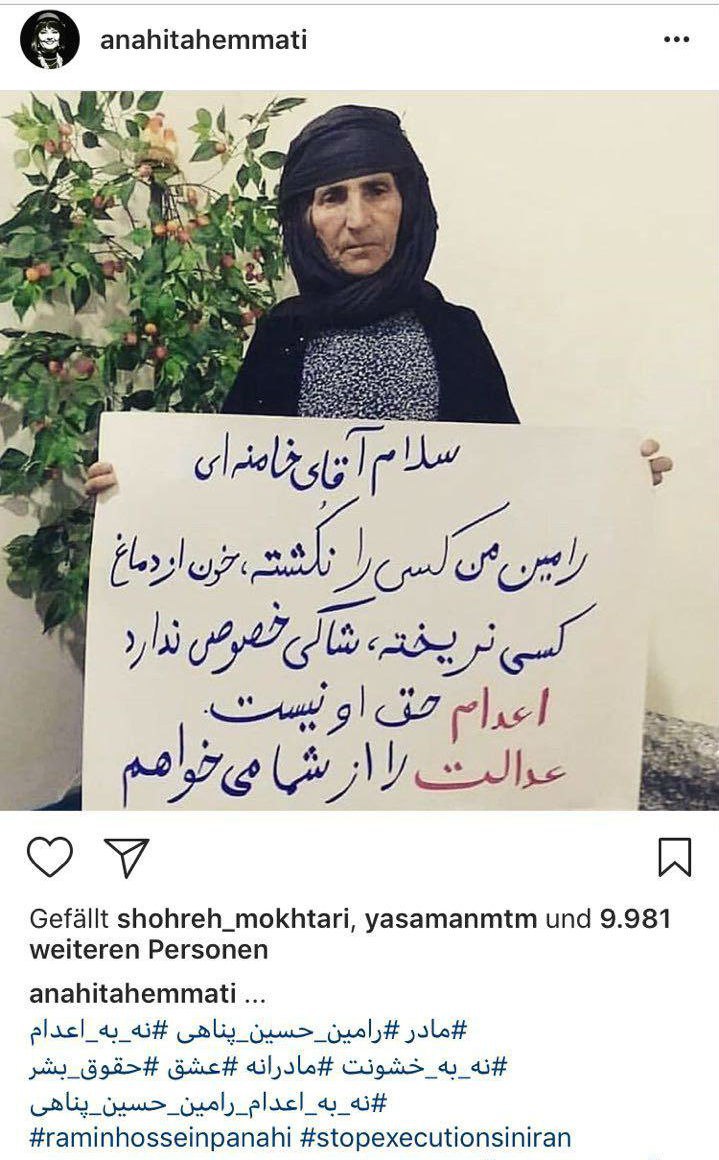 anahitahemmati
سلام آقای خامنه ای
رامین من کسی را نکُشته، خون از دماغ
کسی نریخته، شاکی خصوصی ندارد
اعدام حق او نیست.
عدالت را از شما می خواهم
Gefällt shohreh_mokhtari, yasamanmtm und 9.981
weiteren Personen
anahitahemmati ...
#مادر #رامین_حسین_پناهی #نه_به_اعدام
#نه_به_خشونت #مادرانه #عشق #حقوق_بشر
#نه_به_اعدام_رامین_حسین_پناهی
#raminhosseinpanahi #stopexecutionsiniran